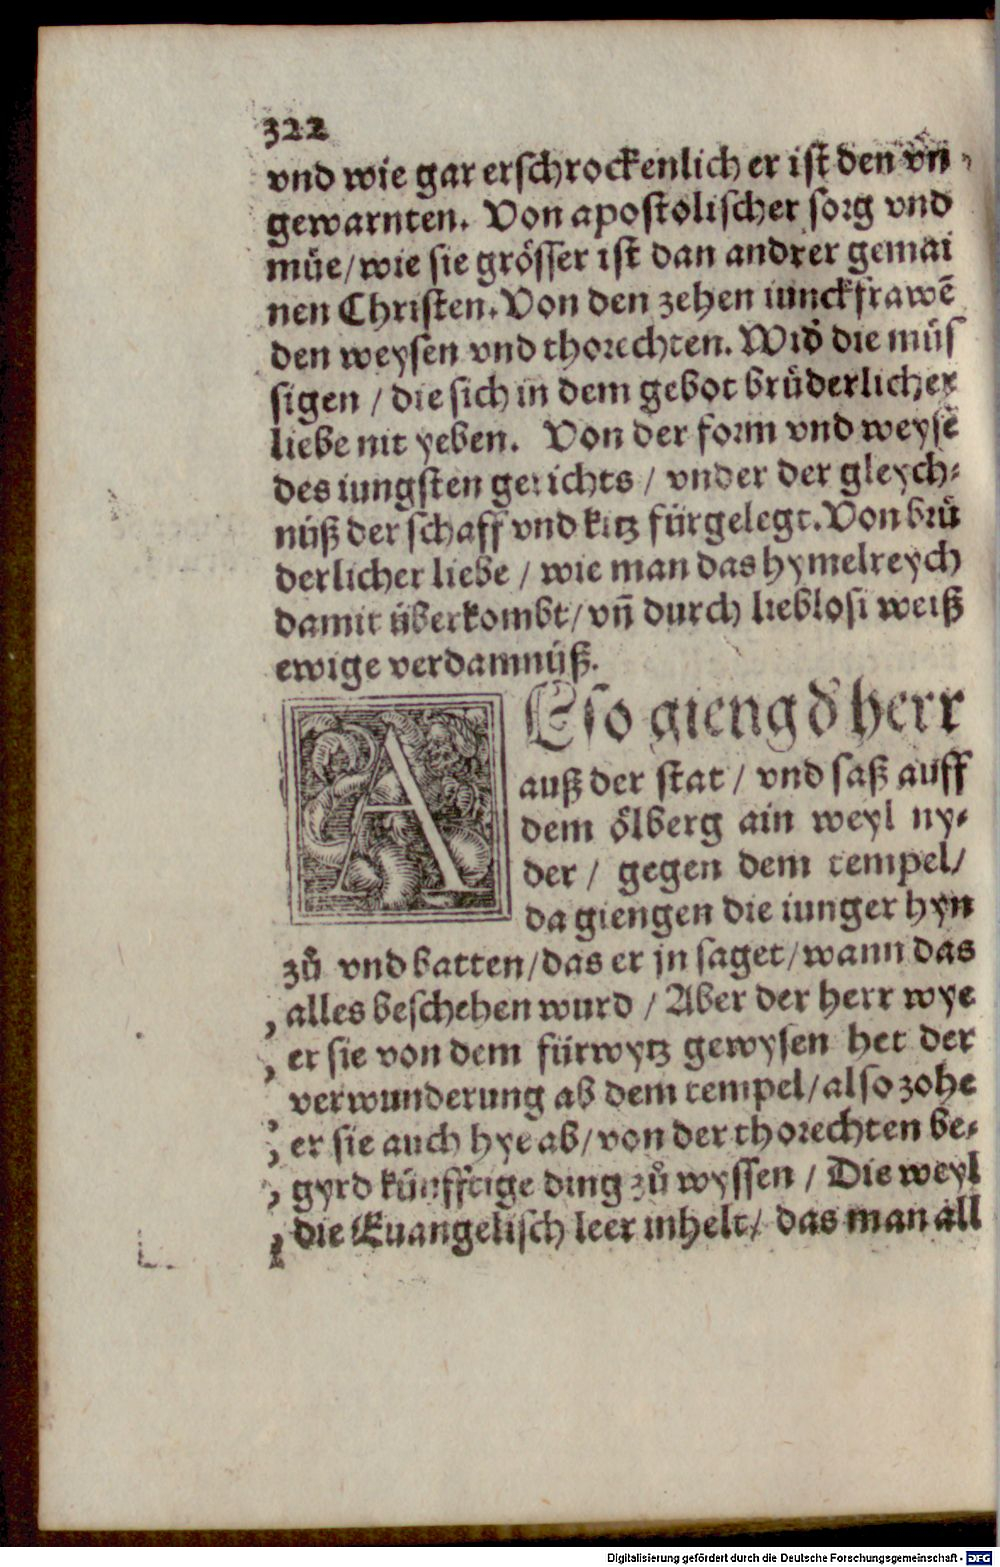 322
vnd wie gar erschrockenlich er ist den vn-
gewarnten. Von apostolischer sorg vnd
müe/wie sie grösser ist dan andrer gemai
nen Christen. Von den zehen iunckfrawē
den weysen vnd thorechten. Wid̄ die müs
sigen / die sich in dem gebot brüderlicher
liebe nit yeben. Von der form vnd weysē
des iungsten gerichts / vnder der gleych-
nüß der schaff vnd kitz fürgelegt. Von brü
derlicher liebe / wie man das hymelreych
damit überkombt/ vn̄ durch lieblosi weiß
ewige verdamnüß.
ALso gieng d̄ herr
auß der stat / vnd saß auff
dem ölberg ain weyl ny-
der / gegen dem tempel/
da giengen die iunger hyn
zů vnd batten/das er jn saget/wann das
alles beschehen wurd / Aber der herr wye
er sie von dem fürwytz gewysen het der
verwunderung ab dem tempel/also zohe
er sie auch hye ab/von der thorechten be-
gyrd künfftige ding zů wyssen / Die weyl
die Euangelisch leer inhelt/ das man all
Digitalisierung gefördert durch die Deutsche Forschungsgemeinschaft - DFG